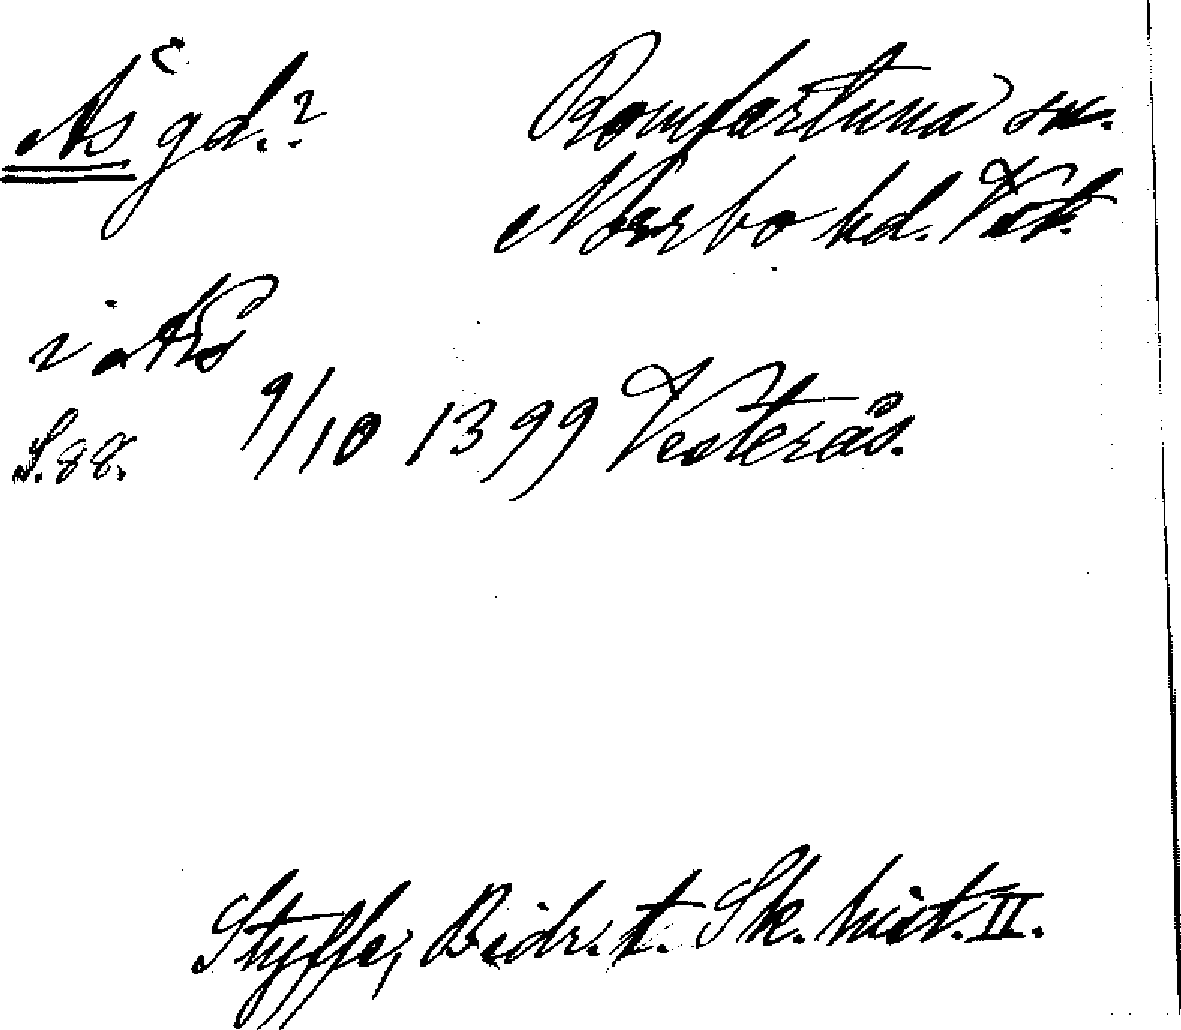 Ås gd.? Romfartuna sn.
Norrbo hd. Vstm.
i
S. 88. 9/10 1399 Vesterås.
Styffe, Bidr. t. Sk. hist. II.